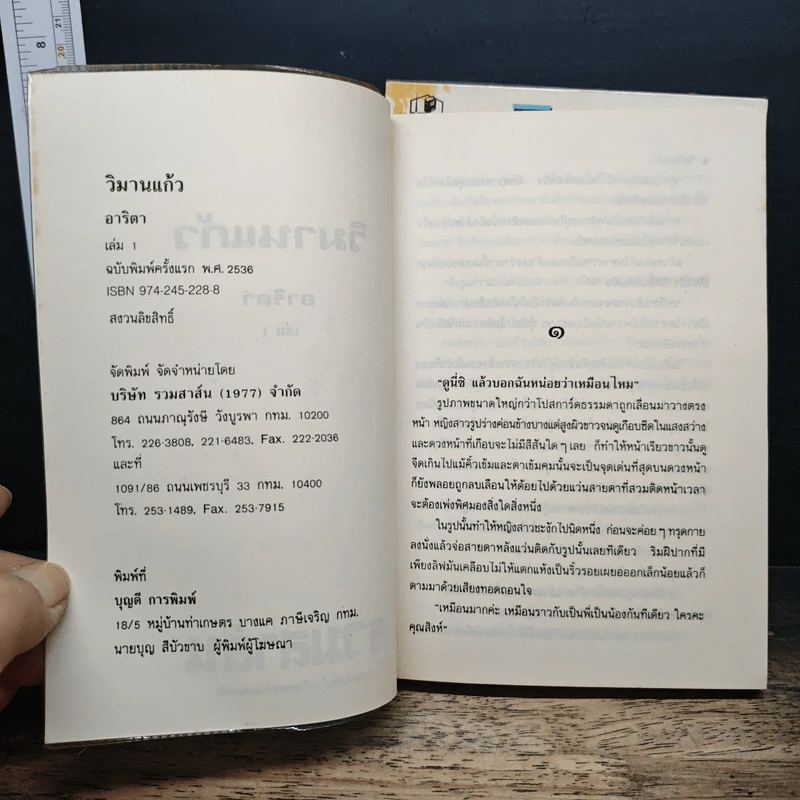 8
20
21
วิมานแก้ว
อาริตา
เล่ม 1
ฉบับพิมพ์ครั้งแรก พ.ศ. 2536
ISBN 974-245-228-8
สงวนลิขสิทธิ์
จัดพิมพ์ จัดจำหน่ายโดย
บริษัท รวมสาส์น (1977) จำกัด
864 ถนนภาณุรังษี วังบูรพา กทม. 10200
โทร. 226-3808, 221-6483, Fax. 222-2036
และที่
1091/86 ถนนเพชรบุรี 33 กทม. 10400
โทร. 253-1489, Fax. 253-7915
พิมพ์ที่
บุญดี การพิมพ์
18/5 หมู่บ้านท่าเกษตร บางแค ภาษีเจริญ กทม.
นายบุญ สีบัวขาบ ผู้พิมพ์ผู้โฆษณา
๑
“ดูนี่ซิ แล้วบอกฉันหน่อยว่าเหมือนไหม”
รูปภาพขนาดใหญ่กว่าโปสการ์ดธรรมดาถูกเลื่อนมาวางตรง
หน้า หญิงสาวรูปร่างค่อนข้างบางแต่สูงผิวขาวจนดูเกือบซีดในแสงสว่าง
และดวงหน้าที่เกือบจะไม่มีสีสันใดๆ เลย ก็ทำให้หน้าเรียวขาวนั้นดู
จืดเกินไปแม้คิ้วเข้มและตาเข้มคมนั้นจะเป็นจุดเด่นที่สุดบนดวงหน้า
ก็ยังพลอยถูกลบเลือนให้ด้อยไปด้วยแว่นสายตาที่สวมติดหน้าเวลา
จะต้องเพ่งพิศมองสิ่งใดสิ่งหนึ่ง
ในรูปนั้นทำให้หญิงสาวชะงักไปนิดหนึ่ง ก่อนจะค่อยๆ ทรุดกาย
ลงนั่งแล้วจ่อสายตาหลังแว่นติดกับรูปนั้นเลยทีเดียว ริมฝีปากที่มี
เพียงลิฟมันเคลือบไม่ให้แตกแห้งเป็นริ้วรอยเผยอออกเล็กน้อยแล้วก็
ตามมาด้วยเสียงทอดถอนใจ
“เหมือนมากค่ะ เหมือนราวกับเป็นพี่เป็นน้องกันทีเดียว ใครคะ
คุณสิงห์”